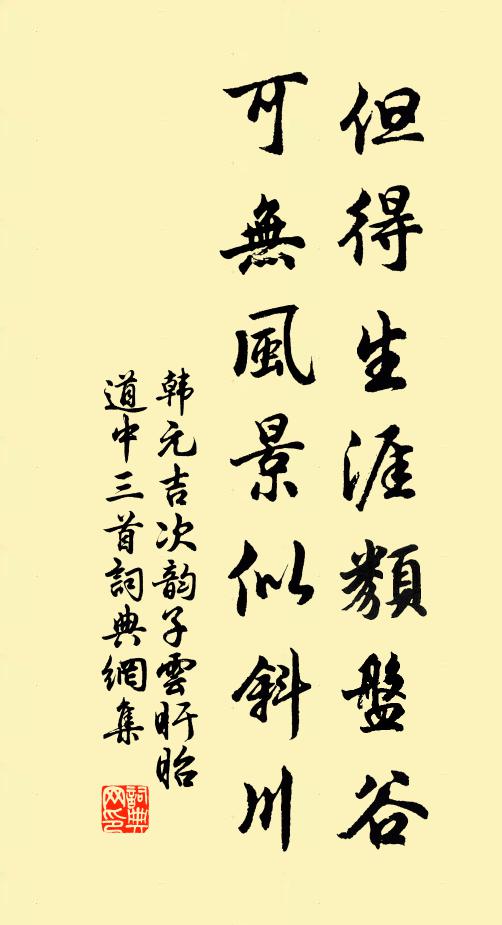 但得生涯類盤谷
可無風景似斜川
韩元吉次韵子雲盱眙
道中三首詞典網集
詞典
网印